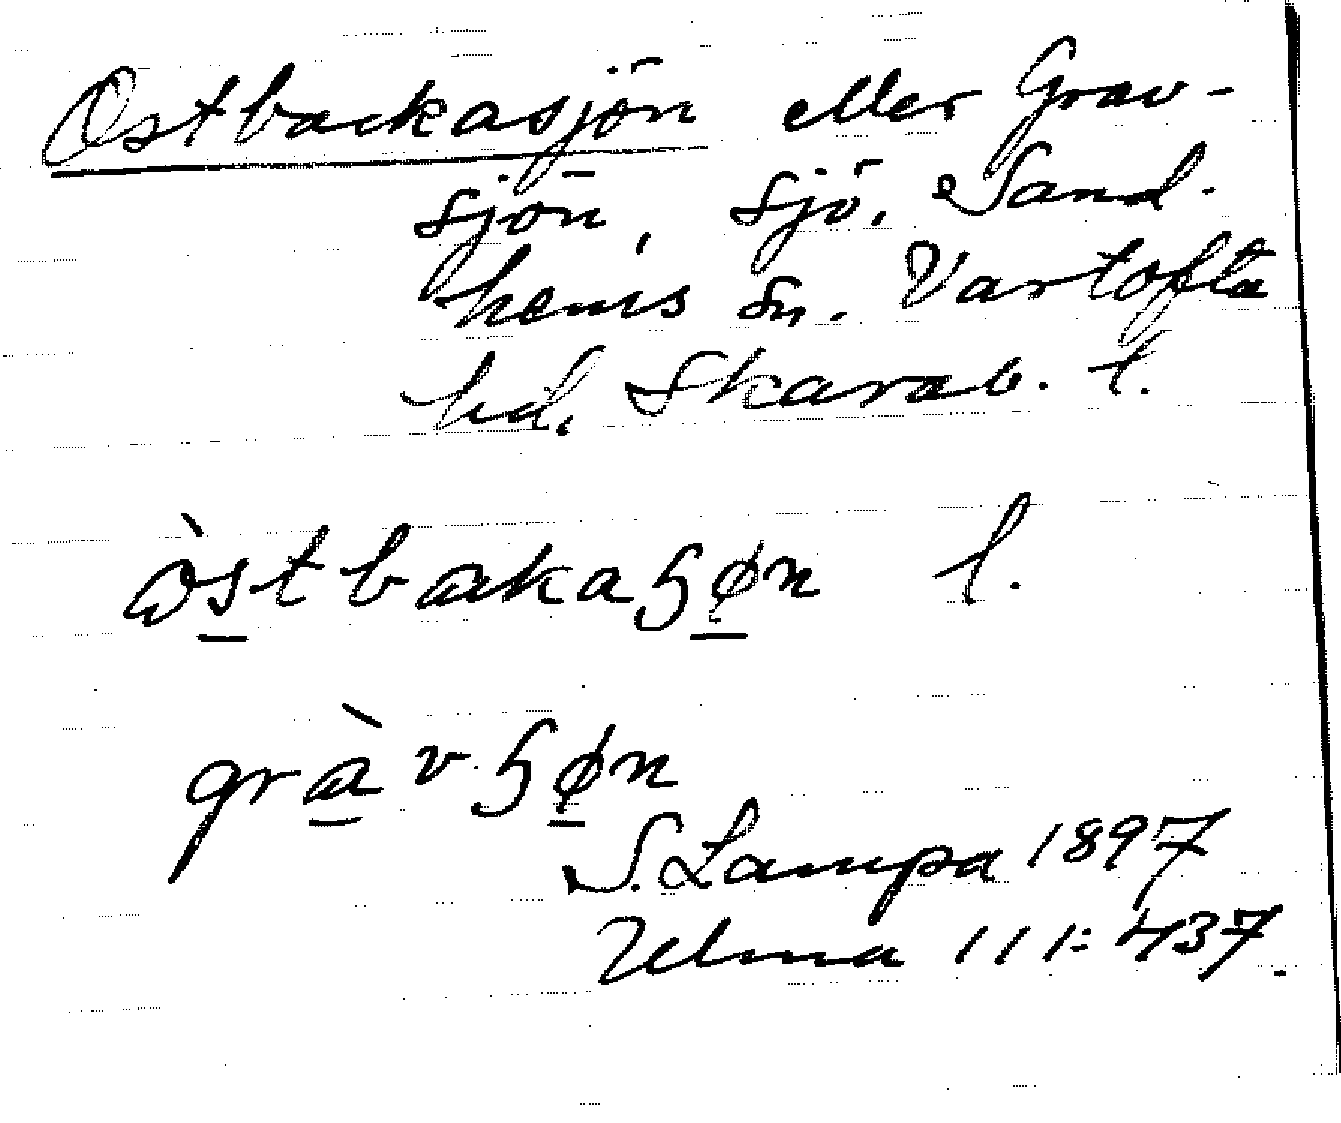 Ostbackasjön eller Grav-
sjön, sjö. Sand-
hems sn. Vartofta
hd. Skarab. l.
òstbakaʃøn l.
gràvʃøn
S. Lampa 1897
Ulma 111:437.